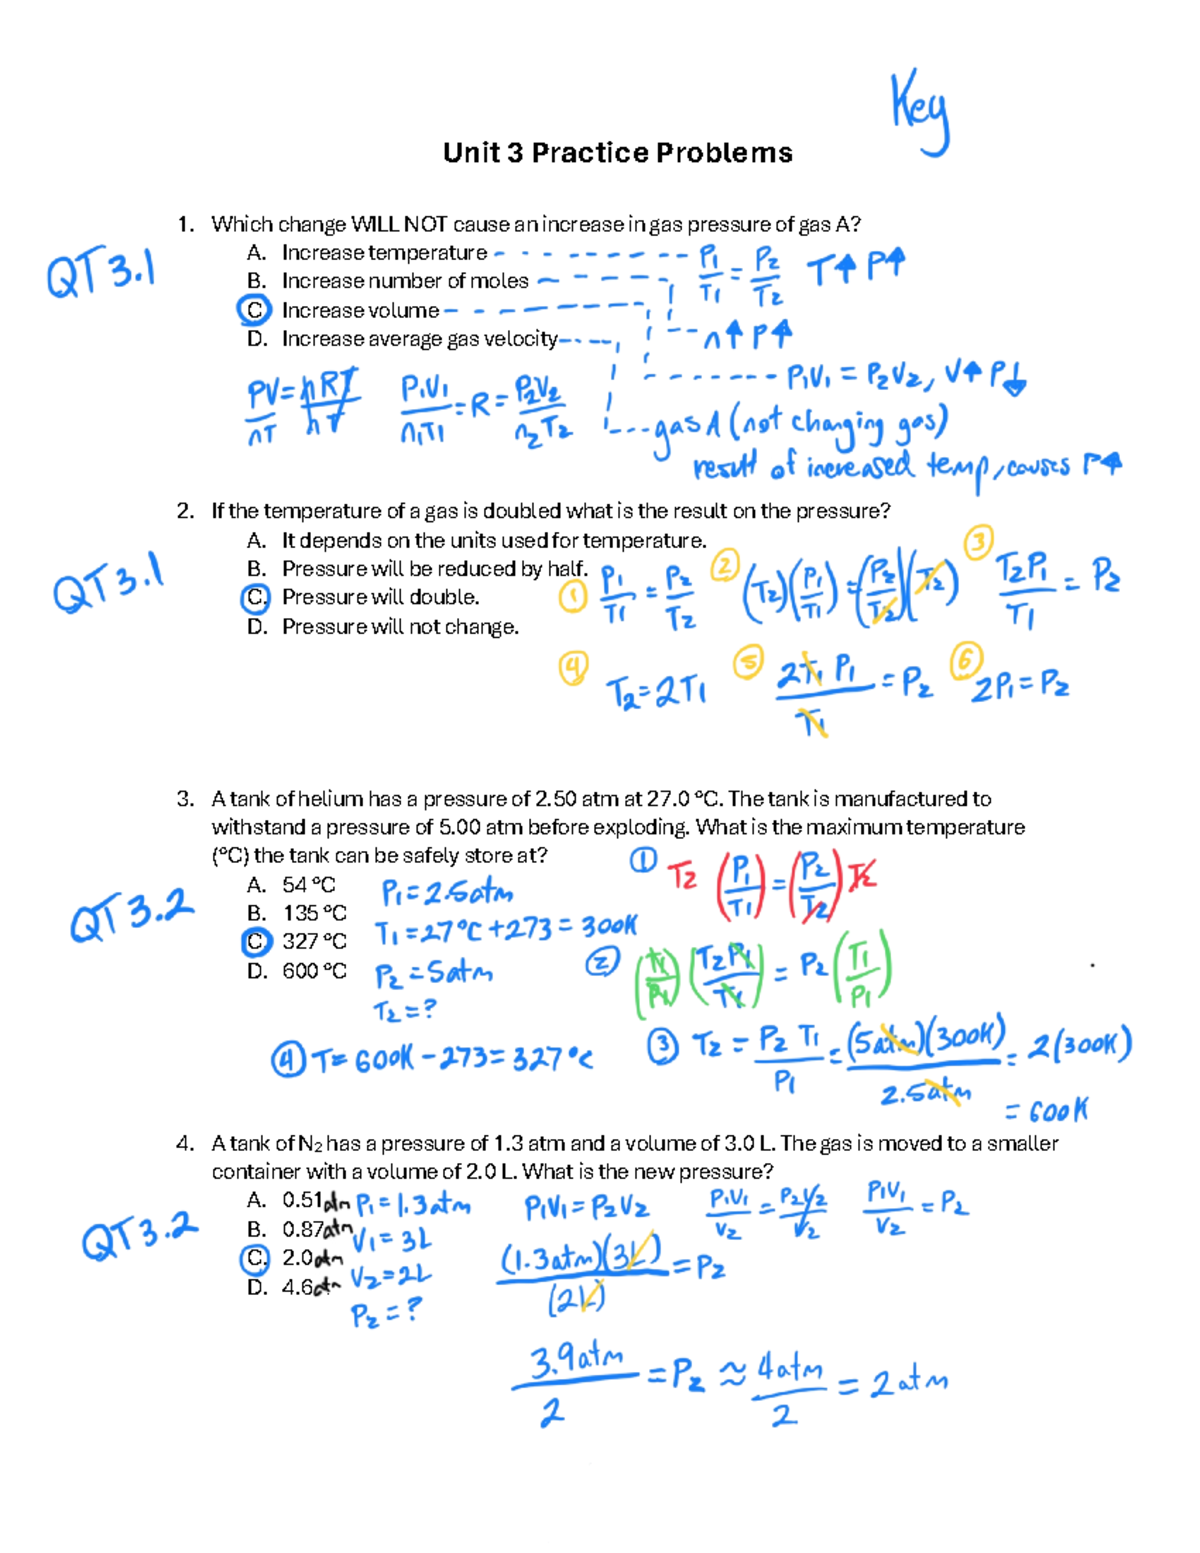 Key
Unit 3 Practice Problems
QT 3.1
1. Which change WILL NOT cause an increase in gas pressure of gas A?
A. Increase temperature P1/T1 = P2/T2 T↑ P↑
B. Increase number of moles n↑ P↑
C. Increase volume P1V1 = P2V2, V↑ P↓
D. Increase average gas velocity gas A (not changing gas)
result of increased temp, causes P↑
PV/nT = nRT/nT P1V1/n1T1 = R = P2V2/n2T2
QT 3.1
2. If the temperature of a gas is doubled what is the result on the pressure?
A. It depends on the units used for temperature.
B. Pressure will be reduced by half.
C. Pressure will double.
D. Pressure will not change.
① P1/T1 = P2/T2 ② (T2)(P1/T1) = (P2/T2)(T2) ③ T2P1/T1 = P2
④ T2 = 2T1 ⑤ 2T1 P1/T1 = P2 ⑥ 2P1 = P2
QT 3.2
3. A tank of helium has a pressure of 2.50 atm at 27.0 ºC. The tank is manufactured to
withstand a pressure of 5.00 atm before exploding. What is the maximum temperature
(ºC) the tank can be safely store at?
A. 54 ºC
B. 135 ºC
C. 327 ºC
D. 600 ºC
P1 = 2.5atm
T1 = 27°C + 273 = 300K
P2 = 5atm
T2 = ?
① T2 (P1/T1) = (P2/T2) T2
② (T1/P1) (T2P1/T1) = P2 (T1/P1)
③ T2 = P2 T1/P1 = (5atm)(300K)/2.5atm = 2(300K)
= 600K
④ T = 600K - 273 = 327°C
QT 3.2
4. A tank of N2 has a pressure of 1.3 atm and a volume of 3.0 L. The gas is moved to a smaller
container with a volume of 2.0 L. What is the new pressure?
A. 0.51atm
B. 0.87atm
C. 2.0atm
D. 4.6atm
P1 = 1.3atm
V1 = 3L
V2 = 2L
P2 = ?
P1V1 = P2V2 P1V1/V2 = P2V2/V2 P1V1/V2 = P2
(1.3atm)(3L)/(2L) = P2
3.9atm/2 = P2 ≈ 4atm/2 = 2atm